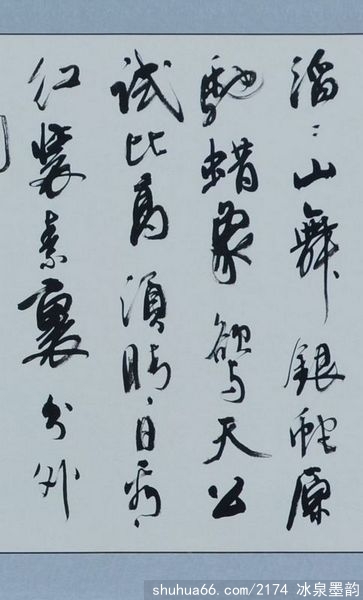 滔〻山舞银蛇原
驰蜡象欲与天公
试比高须晴日看
红装素裹分外
shuhua66.com/2174 冰泉墨韵